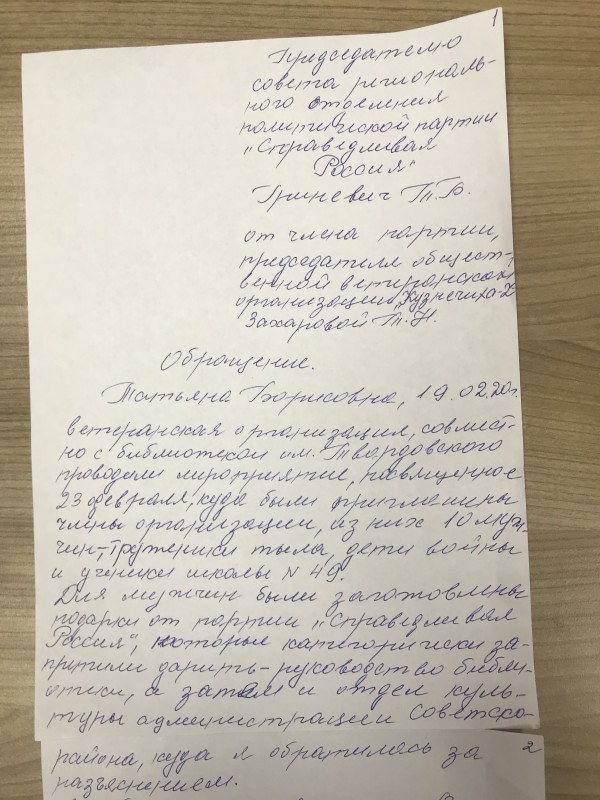 1
Председателю
совета регионально-
ного отделения
политической партии
"Справедливая
Россия"
Гриневич Т.Б.
от члена партии,
председателя общест-
венной ветеранской
организации "Кузнечиха-2"
Захаровой Т.Н.
Обращение.
Татьяна Борисовна, 19.02.20г.
ветеранская организация, совмест-
но с библиотекой им. Твардовского
проводили мероприятие, посвященное
23 февраля, куда были приглашены
члены организации, из них 10 муж-
чин, труженики тыла, дети войны
и ученики школы N 49.
Для мужчин были заготовлены
подарки от партии "Справедливая
Россия", которые категорически за-
претили дарить - руководство библи-
отеки, а затем и отдел куль-
туры администрации Советско-
2
района, куда я обратилась за
разъяснением.